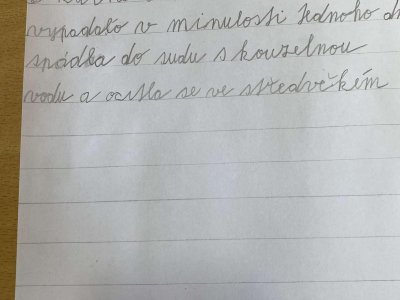 vypadalo v minulosti Jednoho
spadla do sudu s kouzelnou
vodu a ocitla se ve středvěkém